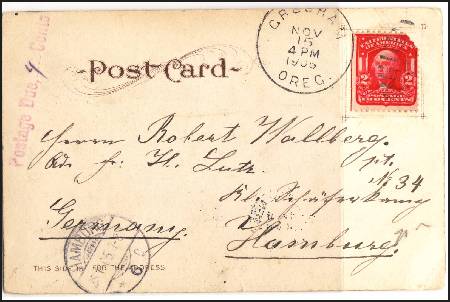 Postage Due 4 Cents
GRESHAM
NOV
15
4 PM
1905
OREG.
UNITED STATES OF AMERICA
2 2
POSTAGE
TWO CENTS
Post Card
Herrn Robert Wallberg.
Adr. fr. H. Lutz. pt.
Kl. Schäferkamp № 34
Germany. Hamburg.
HAMBURG
THIS SIDE IS FOR THE ADDRESS